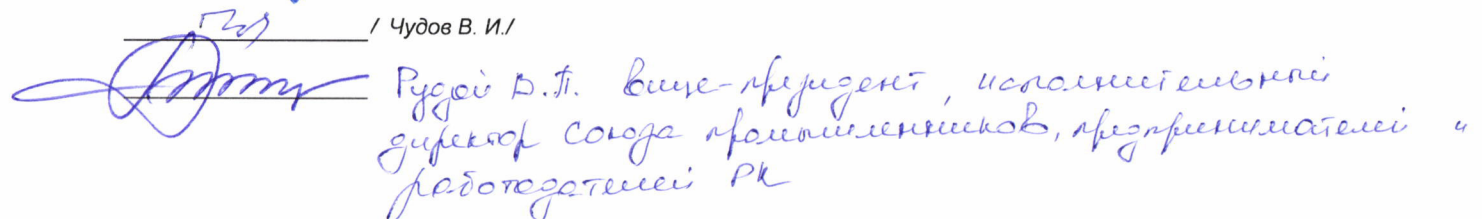 / Чудов В. И./
Рудой В.П. вице-президент, исполнительный
директор Союза промышленников, предпринимателей и
работодателей РК